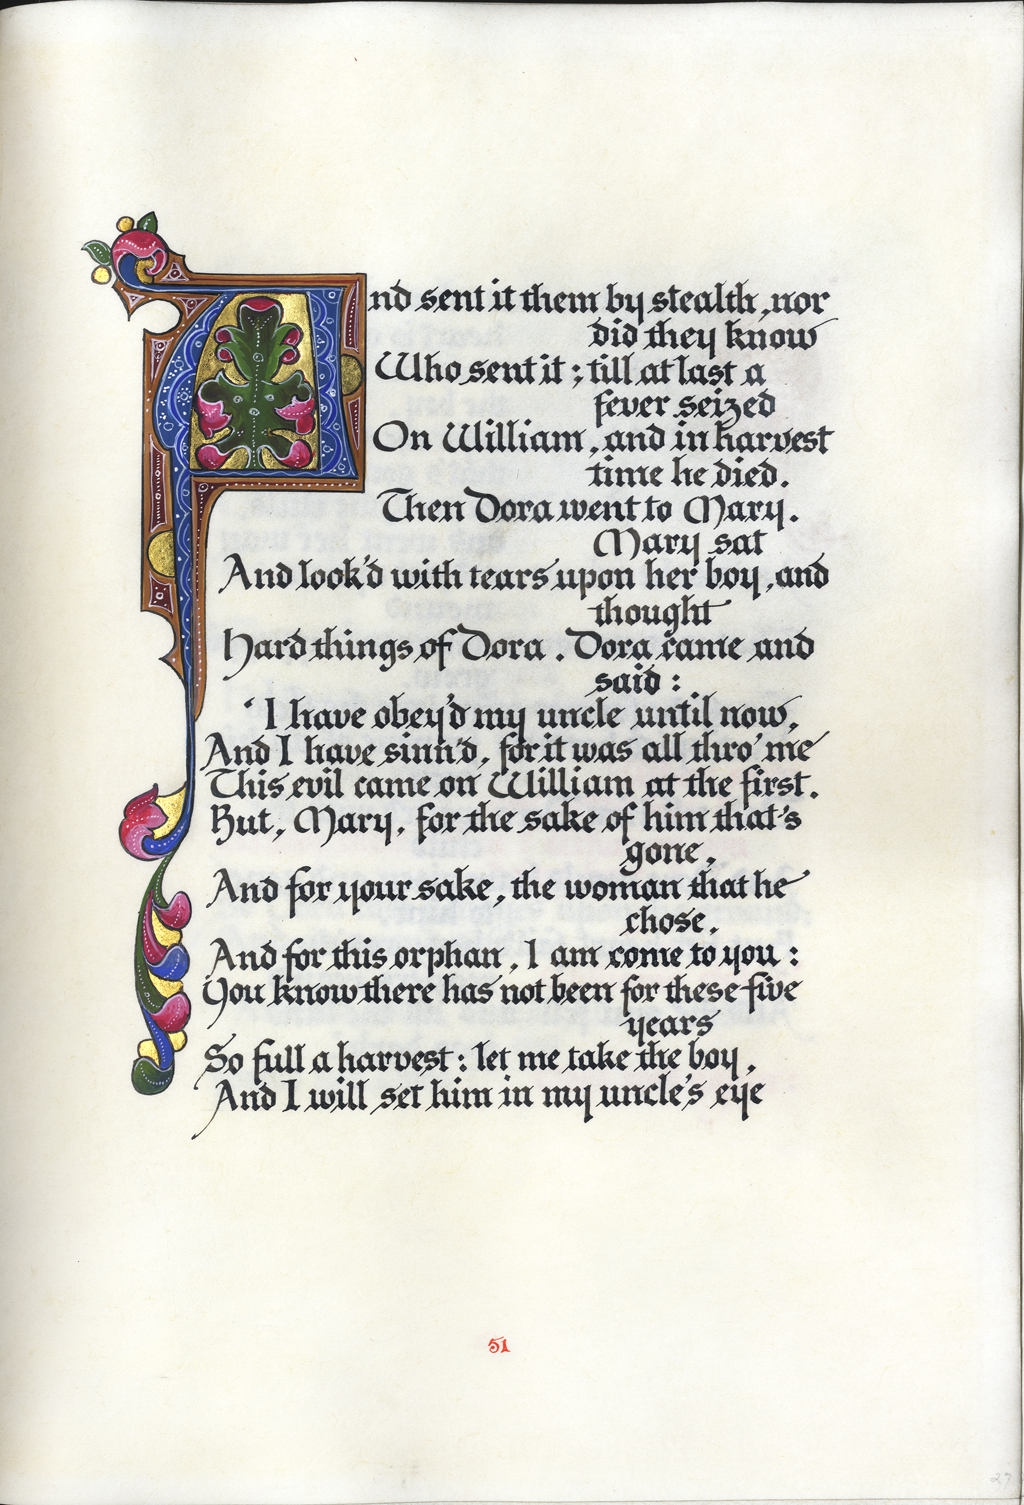 And sent it them by stealth, nor
did they know
Who sent it ; till at last a
fever seized
On William, and in harvest
time he died.
Then Dora went to Mary.
Mary sat
And look'd with tears upon her boy, and
thought
Hard things of Dora. Dora came and
said :
‘I have obey'd my uncle until now,
And I have sinn'd, for it was all thro' me
This evil came on William at the first.
But, Mary, for the sake of him that's
gone,
And for your sake, the woman that he
chose,
And for this orphan, I am come to you :
You know there has not been for these five
years
So full a harvest : let me take the boy,
And I will set him in my uncle's eye
51
27